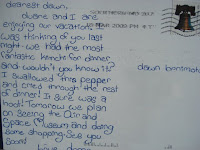 dearest dawn,
duane and I are
enjoying our vacation. I
was thinking of you last
night. we had the most
fantastic kimchi for dinner
and wouldn't you know it?
I swallowed this pepper
and cried through the rest
of dinner! It sure was a
hot! Tomorrow we plan
on seeing the Air and
Space Museum and doing
some shopping. See you
soon!
MAR 2000 PM 4 T
dawn